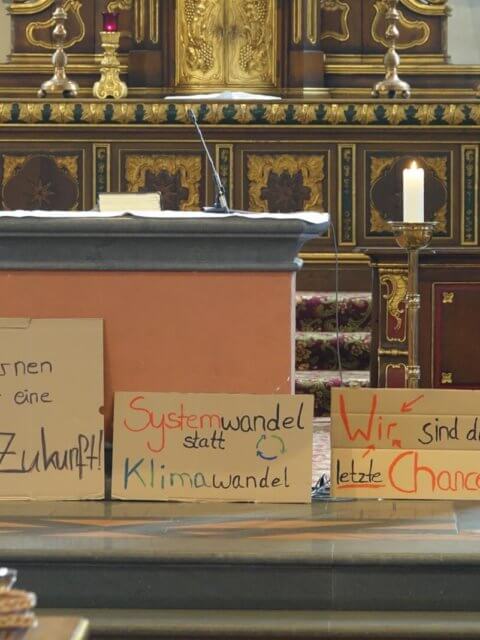 rnen
eine
Zukunft!
Systemwandel
statt
Klimawandel
Wir sind d
letzte Chance